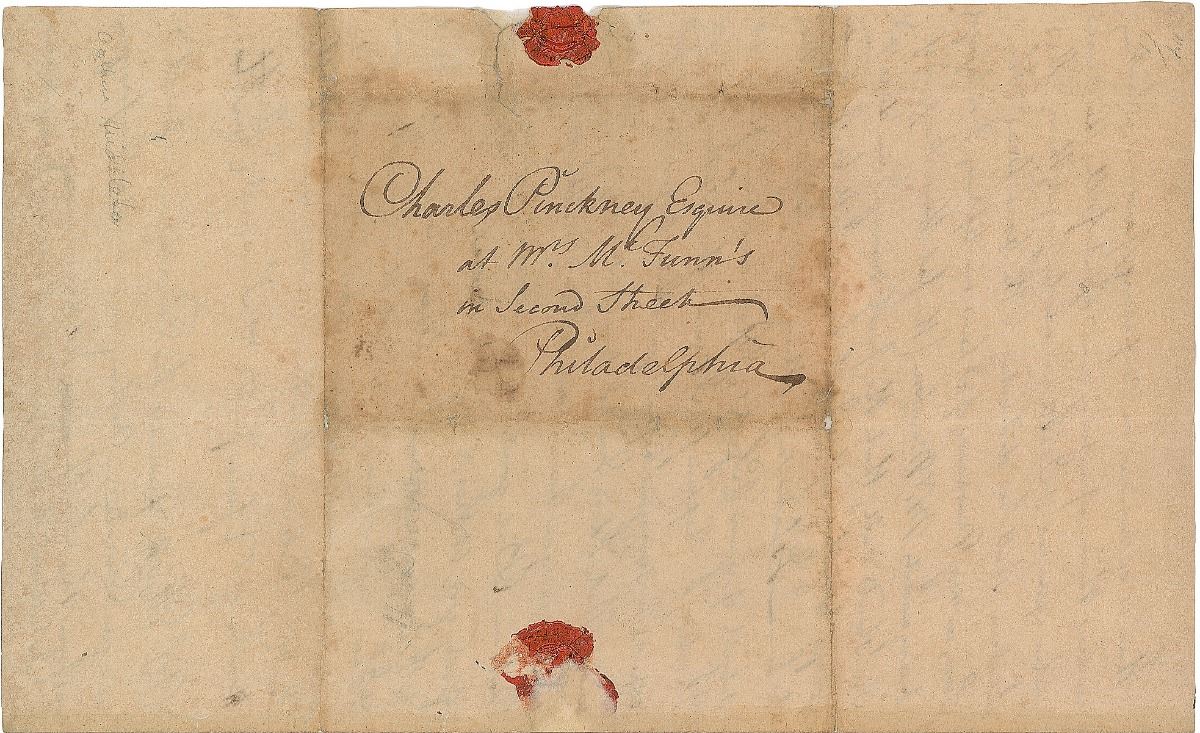 Charles Pinckney Esquire
at Mrs. Mc. Funn's
in Second Street
Philadelphia